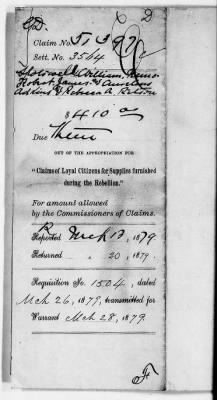 D.
D
Claim No. 51397
Sett. No. 3564
Robert James &
$410 00
Due Them
OUT OF THE APPROPRIATION FOR
"Claims of Loyal Citizens for Supplies furnished
during the Rebellion."
For amount allowed
by the Commissioners of Claims.
Reported Mch 12, 1879
Returned " 20, 1879.
Requisition No. 1504, dated
Mch 26, 1879, transmitted for
Warrant Mch 28, 1879.